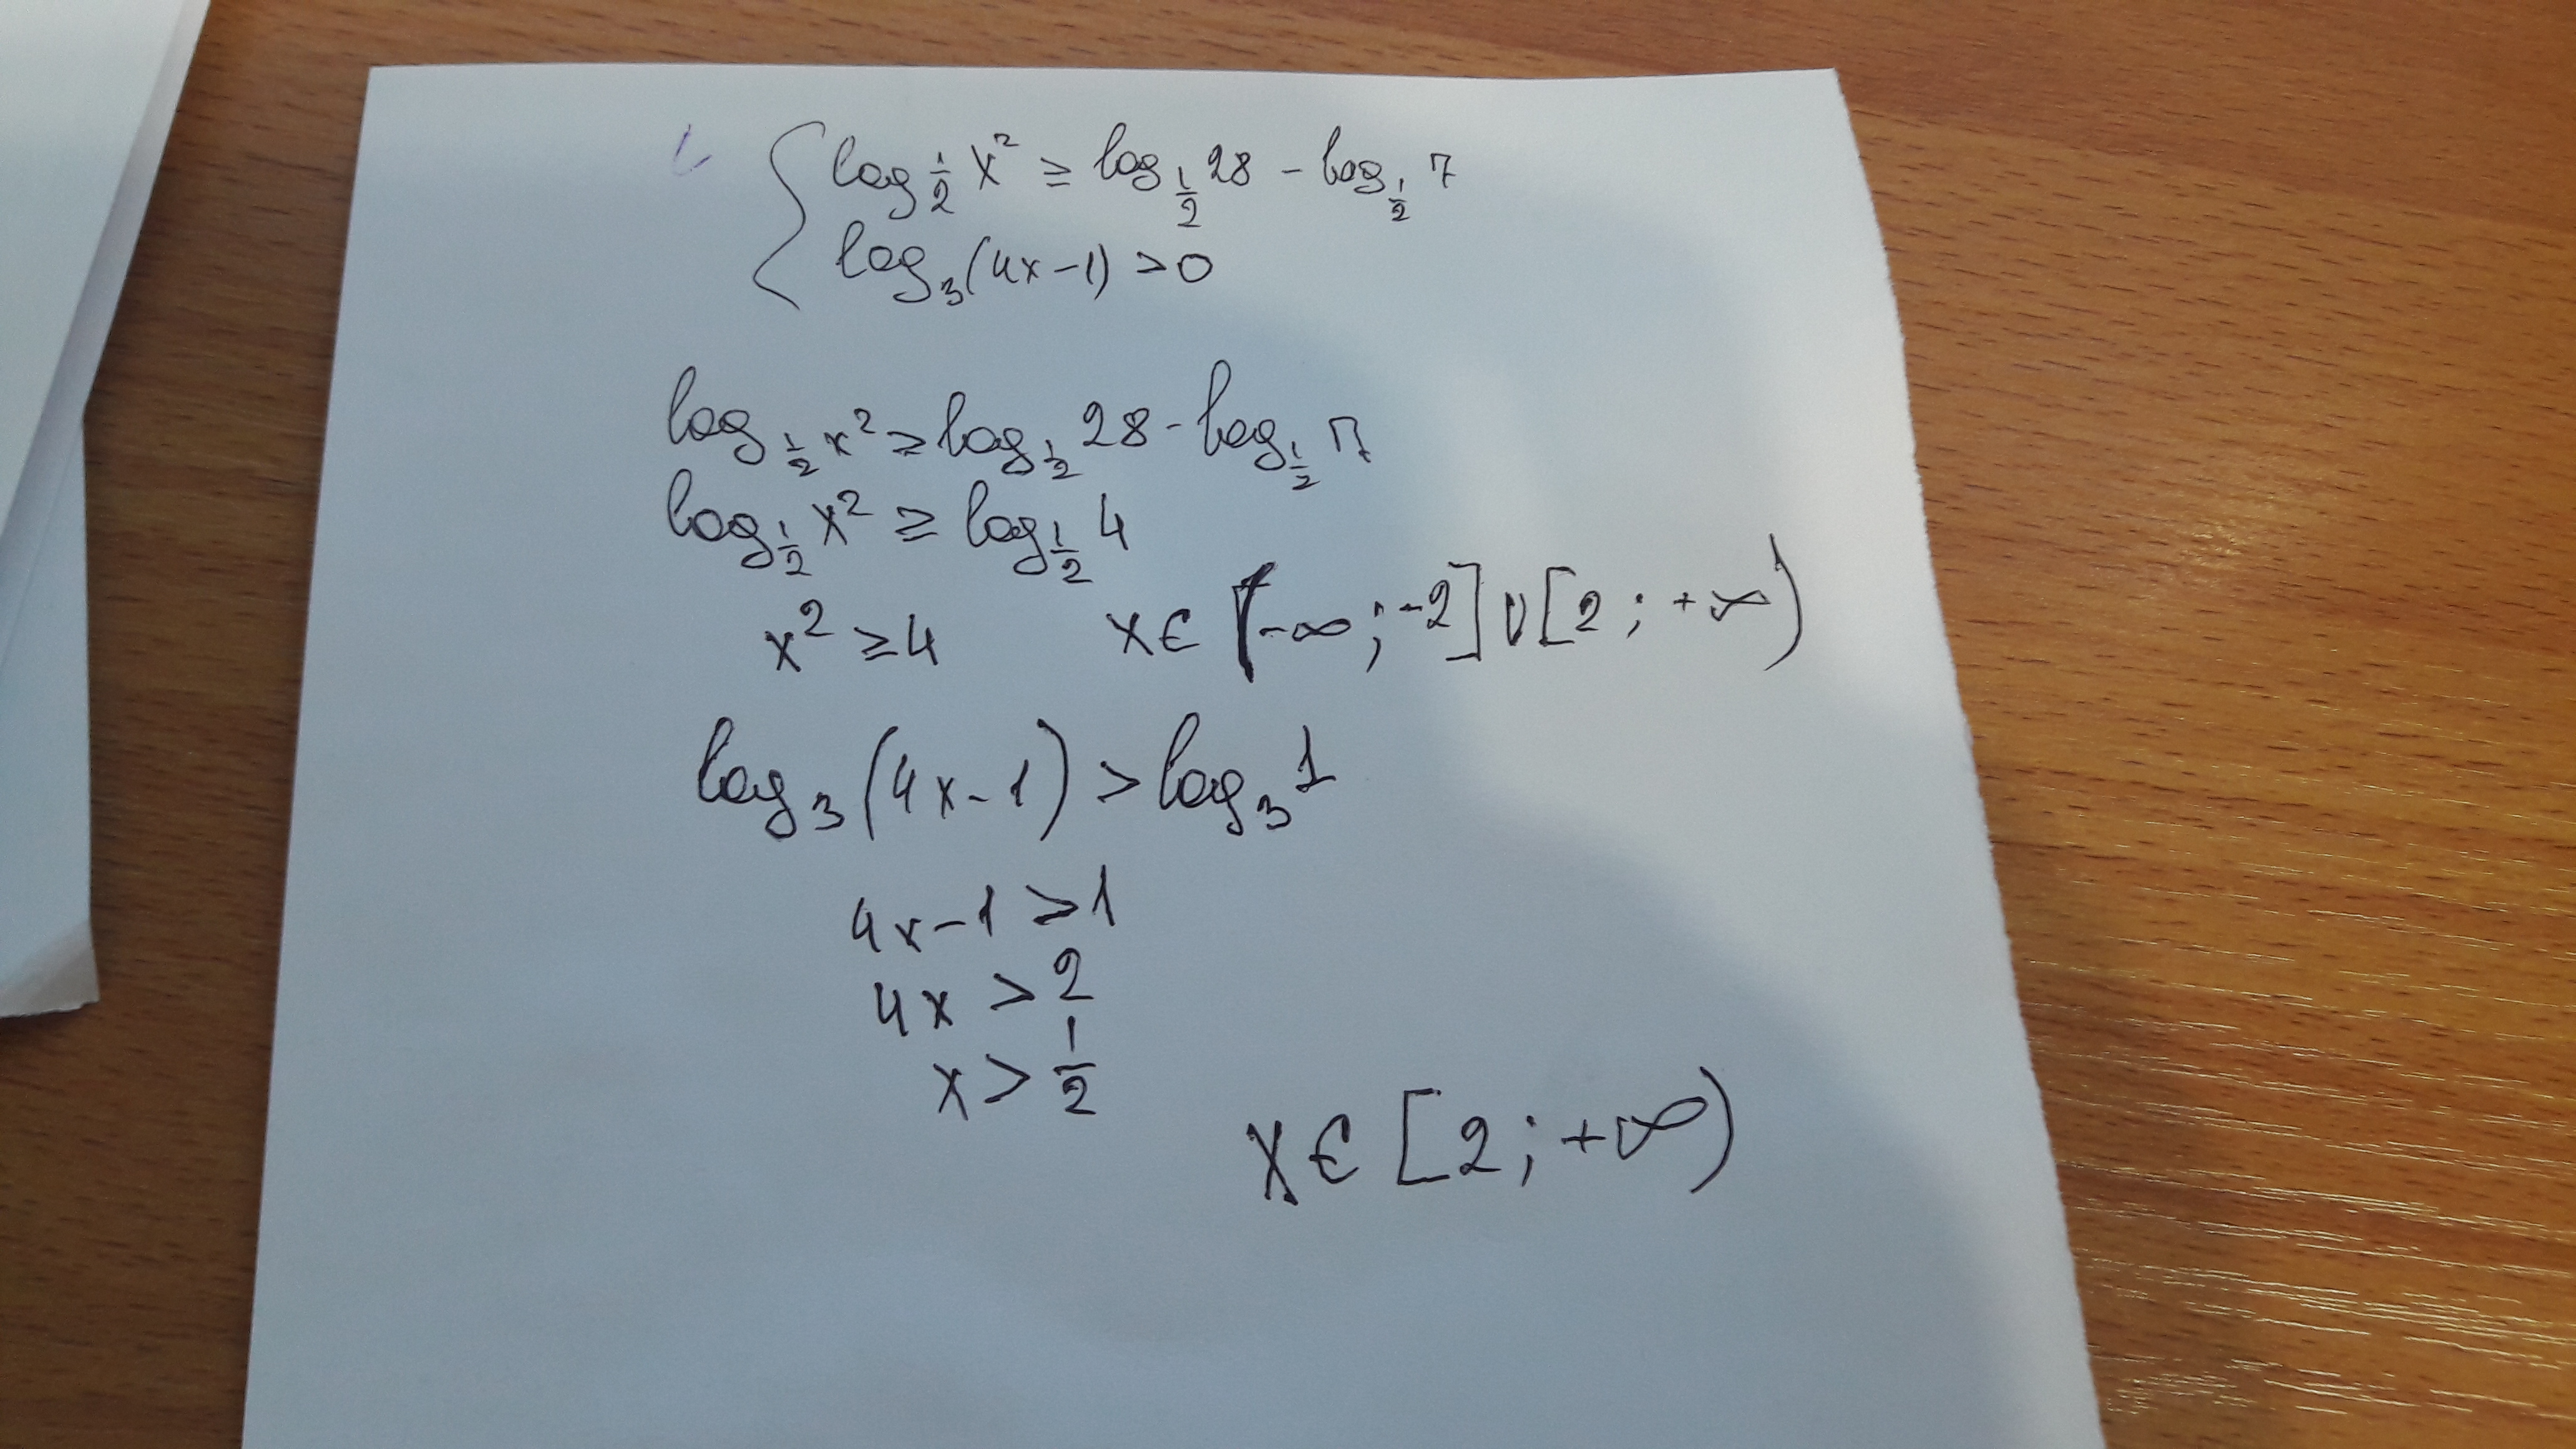 { log_{1/2} x² ≥ log_{1/2} 28 - log_{1/2} 7
log_3 (4x-1) > 0
log_{1/2} x² ≥ log_{1/2} 28 - log_{1/2} 7
log_{1/2} x² ≥ log_{1/2} 4
x² ≥ 4 x ∈ (-∞; -2] ∪ [2; +∞)
log_3 (4x-1) > log_3 1
4x-1 > 1
4x > 2
x > 1/2
x ∈ [2; +∞)